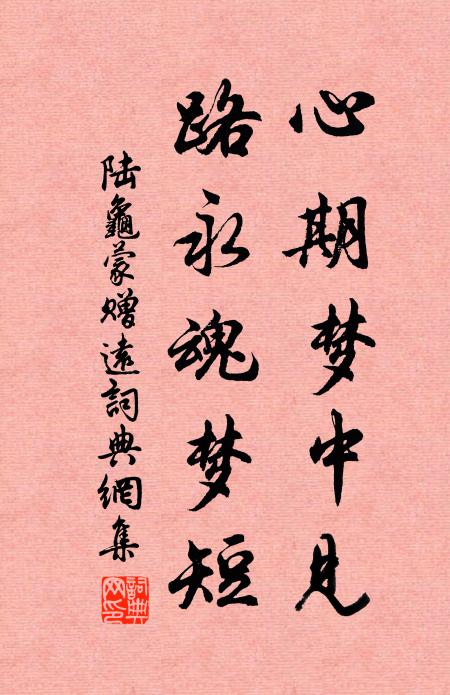 心期梦中见
路永魂梦短
陆龜蒙赠遠詞典網集
詞典网印